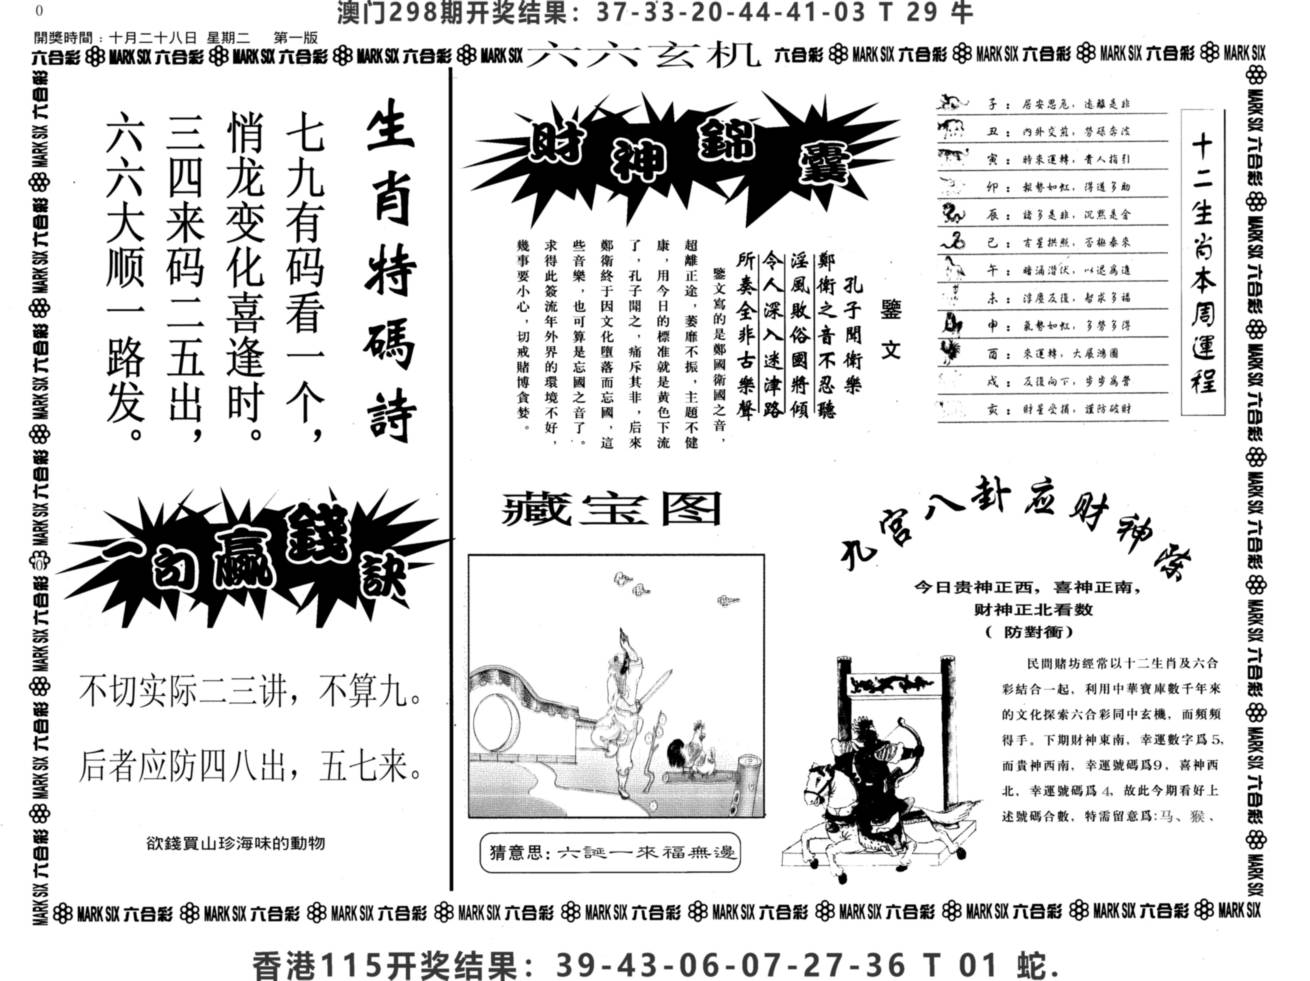 0
澳门298期开奖结果：37-33-20-44-41-03 T 29 牛
開獎時間：十月二十八日 星期二 第一版
六合彩 MARK SIX 六合彩 MARK SIX 六合彩 MARK SIX 六合彩 MARK SIX
六六玄机
六合彩 MARK SIX 六合彩 MARK SIX 六合彩 MARK SIX 六合彩 MARK SIX
生肖特碼詩
七九有码看一个，
悄龙变化喜逢时。
三四来码二五出，
六六大顺一路发。
財神錦囊
鑒文
孔子聞衛樂
鄭衛之音不忍聽
淫風敗俗國將傾
令人深入迷津路
所奏全非古樂聲
鑒文寫的是鄭國衛國之音，
超離正途，萎靡不振，主題不健
康，用今日的標准就是黄色下流
了，孔子聞之，痛斥其非，后來
鄭衛終于因文化墮落而忘國，這
些音樂，也可算是忘國之音了。
求得此簽流年外界的環境不好，
幾事要小心，切戒賭博貪婪。
十二生肖本周運程
子：居安思危，遠離是非
丑：内外交煎，勞碌奔波
寅：時來運轉，貴人指引
卯：報勢如虹，得道多助
辰：諸多是非，沉默是金
巳：吉星拱照，否極泰來
午：暗涌潜伏，以退爲進
未：淳塵反復，智求多福
申：氣勢如虹，多勞多得
酉：來運轉，大展鴻圖
戌：反復向下，步步爲營
亥：財星受損，謹防破財
一句贏錢訣
不切实际二三讲，不算九。
后者应防四八出，五七来。
欲錢買山珍海味的動物
藏宝图
猜意思：六誕一來福無邊
九宫八卦应财神
今日贵神正西，喜神正南，
财神正北看数
（防對衝）
民間賭坊經常以十二生肖及六合
彩結合一起，利用中華寶庫數千年來
的文化探索六合彩同中玄機，而頻頻
得手。下期財神東南，幸運數字爲5，
而貴神西南，幸運號碼爲9，喜神西
北，幸運號碼爲4，故此今期看好上
述號碼合數，特需留意爲:马、猴、
MARK SIX 六合彩 MARK SIX 六合彩 MARK SIX 六合彩 MARK SIX 六合彩 MARK SIX 六合彩 MARK SIX 六合彩 MARK SIX 六合彩 MARK SIX 六合彩 MARK SIX 六合彩 MARK SIX
香港115开奖结果：39-43-06-07-27-36 T 01 蛇.